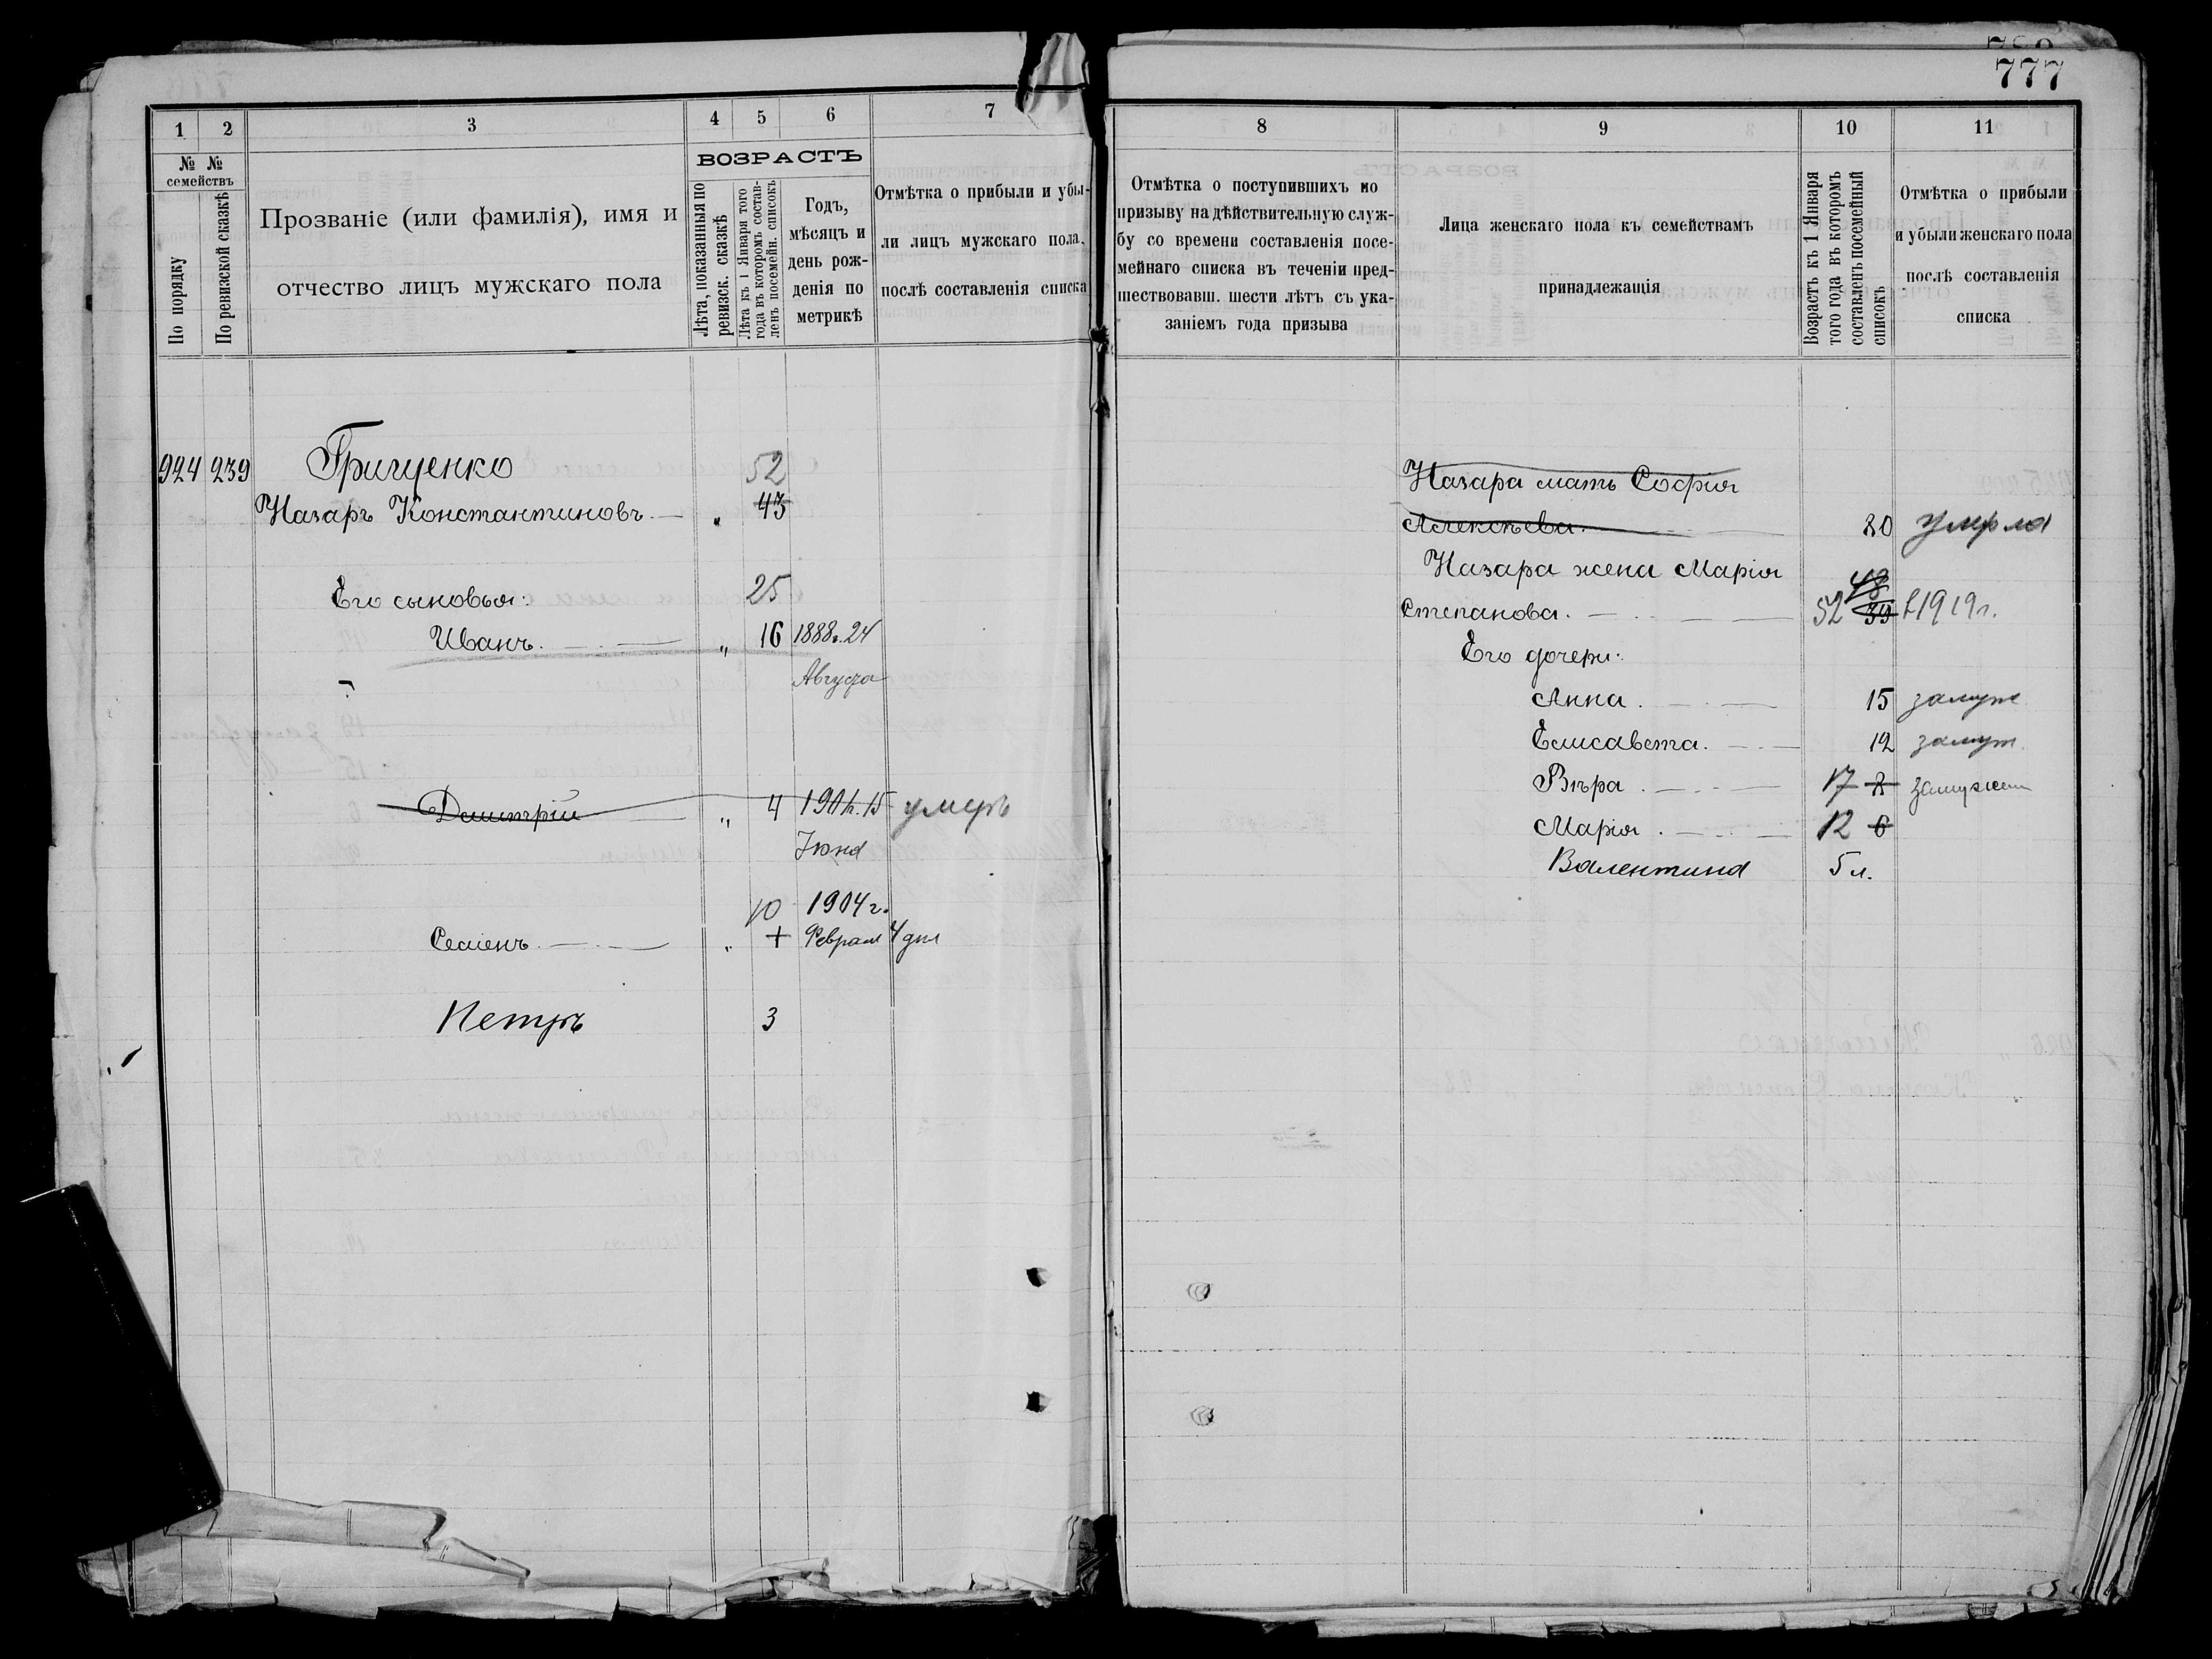 777
1 2 3 4 5 6 7
№ № семействъ
По порядку
По ревизской сказкѣ
Прозваніе (или фамилія), имя и
отчество лицъ мужскаго пола
ВОЗРАСТЪ
Лѣта, показанныя по
ревизск. сказкѣ
Лѣта къ 1 Января того
года въ которомъ состав-
ленъ посемейн. списокъ
Годъ,
мѣсяцъ и
день рож-
денія по
метрикѣ
Отмѣтка о прибыли и убы-
ли лицъ мужскаго пола,
послѣ составленія списка
924 239 Грищенко 52
Назаръ Константиновъ. — „ 43
Его сыновья: 25
Иванъ. — „ 16 1888г. 24
Августа
Дмитрій — „ 4 1901г. 15 умеръ
Іюна
10 1904 г.
Семенъ. — „ + Февраля 4 дня
Петръ 3
8 9 10 11
Отмѣтка о поступившихъ по
призыву на дѣйствительную служ-
бу со времени составленія посе-
мейнаго списка въ теченіи пред-
шествовавш. шести лѣтъ съ ука-
заніемъ года призыва
Лица женскаго пола къ семействамъ
принадлежащія
Возрастъ къ 1 Января
того года въ которомъ
составленъ посемейный
списокъ
Отмѣтка о прибыли
и убыли женскаго пола
послѣ составленія
списка
Назара мать Софія
Алексѣева. 80 умерла
Назара жена Марія 48
Степанова. — 52 39 1919г.
Его дочери:
Анна. — 15 замуж
Елисавета. — 12 замуж.
Вѣра. — 17 8 замужем
Марія. — 12 6
Валентина 5 л.